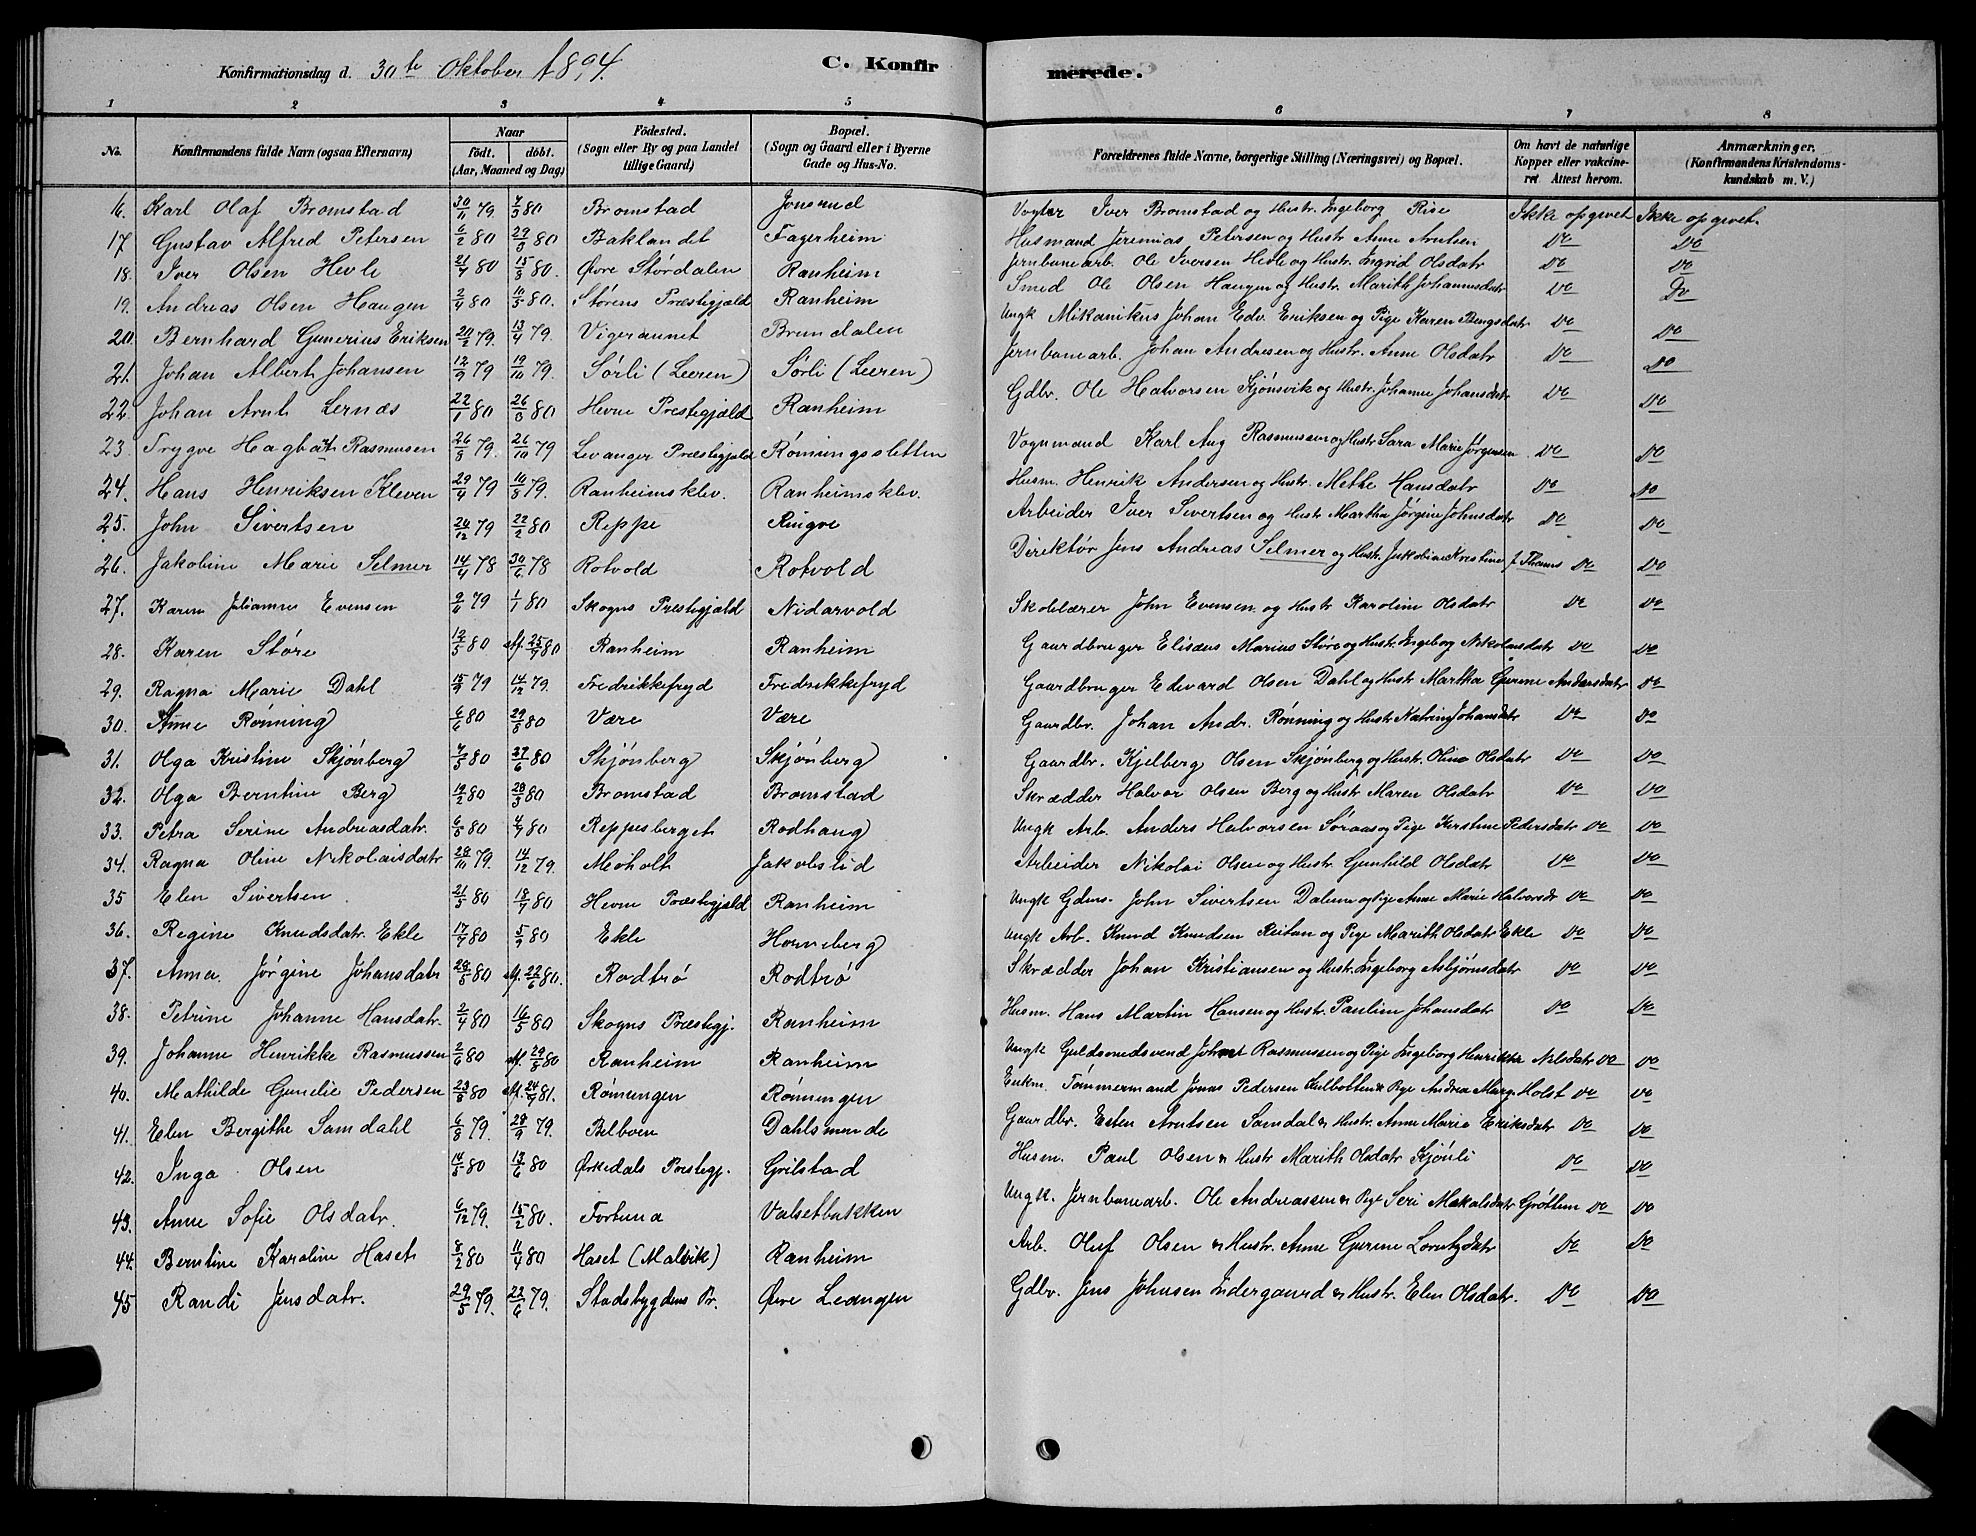 Konfirmationsdag d. 30te Oktober 1894. C. Konfirmerede.
1 2 3 4 5 6 7 8
No. Konfirmandens fulde Navn (ogsaa Efternavn) Naar født. døbt. (Aar, Maaned og Dag) Fødested. (Sogn eller By og paa Landet tillige Gaard) Bopæl. (Sogn og Gaard eller i Byerne Gade og Hus-No. Forældrenes fulde Navne, borgerlige Stilling (Næringsvei) og Bopæl. Om havt de naturlige Kopper eller vakcineret Attest herom. Anmærkninger. (Konfirmandens Kristendomskundskab m. V.)
16. Karl Olaf Bromstad 30/11 79 7/3 80 Bromstad Jonsrud Vogter Iver Bromstad og Hustr. Ingeborg Rise Ikke opgivet Ikke opgivet.
17 Gustav Alfred Petersen 6/2 80 29/3 80 Baklandet Fagerheim Husmand Jeremias Petersen og Hustr Anne Arntsen Do Do
18. Iver Olsen Hevle 21/7 80 15/8 80. Øvre Størdalen Ranheim Jernbanearb. Ole Iversen Hevle og Hustr. Ingrid Olsdatr Do Do
19. Andreas Olsen Haugen 2/4 80 10/5 80. Størens Præstegjæld Ranheim Smed Ole Olsen Haugen og Hustr. Marith Johannesdatr Do Do
20. Bernhard Gunerius Eriksen 20/2 79. 13/4 79. Vigeraunet Brundalen Ungk Mikanikus Johan Edv. Eriksen og Pige Karen Bengsdatr Do Do
21. Johan Albert Johansen 12/9 79 19/10 79. Sørli (Leeren) Sørli (Leeren) Jernbanearb. Johan Andresen og Hustr. Anne Olsdatr Do Do
22. Johan Arnt Lernæs 22/1 80 26/3 80 Hevne Prestegjæld Ranheim Gdbr. Ole Halvorsen Kjønsvik og Hustr. Johanne Johansdatr Do Do
23. Trygve Hagbart Rasmusen 26/8 79. 26/10 79 Levanger Præstegjæld Rønningsletten Vognmand Karl Aug Rasmussen og Hustr Sara Marie Jørgensen Do Do
24. Hans Henriksen Kleven 29/4 79 10/8 79. Ranheimsklev. Ranheimsklev. Husm. Henrik Andersen og Hustr. Methe Hansdatr Do Do
25. John Sivertsen 20/12 79 22/2 80 Reppe Ringve Arbeider Iver Sivertsen og Hustr Martha Jørgine Johnsdatr Do Do
26. Jakobine Marie Selmer 14/4 78 30/6 78 Rotvold Rotvold Direktør Jens Andreas Selmer og Hustr. Jakobine Kristine f. Thams Do Do
27. Karen Julianne Evensen 2/11 79 1/1 80 Skogns Prestegjæld Nidarvold Skolelærer John Evensen og Hustr Karoline Olsdatr Do Do
28. Karen Støre 12/5 80 25/7 80 Ranheim Ranheim Gaardbruger Elisæus Marius Støre og Hustr. Ingeborg Nikolausdatr Do Do
29. Ragna Marie Dahl 15/9 79 14/12 79. Fredrikkefryd Fredrikkefryd Gaardbruger Edvard Olsen Dahl og Hustr Martha Gurine Andersdatr Do
30. Anne Rønning 6/6 80 29/8 80 Være Være Gaardbr. Johan Andr. Rønning og Hustr Katrine Johansdatr Do Do
31. Olga Kristine Skjønberg 4/5 80 27/6 80 Skjønberg Skjønberg Gaardbr. Kjelberg Olsen Skjønberg og Hustr. Oline Olsdatr Do Do
32. Olga Berntine Berg 19/2 80 28/3 80 Bromstad Bromstad Skrædder Halvor Olsen Berg og Hustr Maren Olsdatr Do Do
33. Petra Serine Andreasdatr. 6/5 80 4/7 80 Reppesberget Rodhaug Ungk Arb. Anders Halvorsen Søraas og Pige Kirstine Pedersdatr Do Do
34. Ragna Oline Nikolaisdatr 28/10 79. 14/12 79. Moholt Jakobslid Arbeider Nikolai Olsen og Hustr Gunhild Olsdatr Do Do
35 Elen Sivertsen 21/5 80 18/7 80 Hevne Præstegjæld Ranheim Ungk Gdms. John Sivertsen Dalum og Pige Anne Marie Halvorsdr Do Do
36. Regine Knudsdatr. Ekle 17/7 80 5/9 80 Ekle Horneberg Ungk Arb. Knud Knudsen Reitan og Pige Marith Olsdatr Ekle Do Do
37. Anna Jørgine Johansdatr 20/5 80 22/6 80. Rodtrø Rodtrø Skrædder Johan Kristiansen og Hustr. Ingeborg Asbjørnsdatr Do Do
38. Petrine Johanne Hansdatr. 2/4 80 16/5 80 Skogns Præstegj. Ranheim Husm. Hans Martin Hansen og Hustr. Pauline Johansdatr Do Do
39. Johanne Henrikke Rasmussen 2/6 80 29/8 80 Ranheim Ranheim Ungk Guldsmedsvend Johnet Rasmussen og Pige Ingeborg Henrikka Nilsdatr Do Do
40. Mathilde Gunelie Pedersen 23/8 80 24/7 81. Rønningen Rønningen Enkm. Tømmermand Jonas Pedersen Kulbotten & Pige Andrea Marg. Holst Do Do
41. Elen Bergithe Samdahl 6/8 79. 28/9 79. Belboen Dahlsminde Gaardbr. Esten Arntsen Samdal & Hustr. Anne Marie Eriksdatr Do Do
42. Inga Olsen 14/5 80 13/6 80 Ørkedals Prestegj. Grilstad Husm. Paul Olsen & Hustr Marith Olsdatr Kjønli Do Do
43. Anne Sofie Olsdatr. 6/12 79. 15/2 80. Fortuna Valsetbakken Ungk. Jernbanearb. Ole Andreassen & Pige Seri Mekalsdatr Grøttem Do Do
44. Berntine Karoline Haset 8/2 80 11/4 80 Haset (Malvik) Ranheim Arb. Oluf Olsen & Hustr. Anne Gurine Lorntzdatr Do Do
45 Randi Jensdatr. 29/5 79. 22/6 79. Stadsbygdens Pr. Øvre Leangen Gdbr. Jens Johnsen Indergaard & Hustr. Elen Olsdatr. Do Do